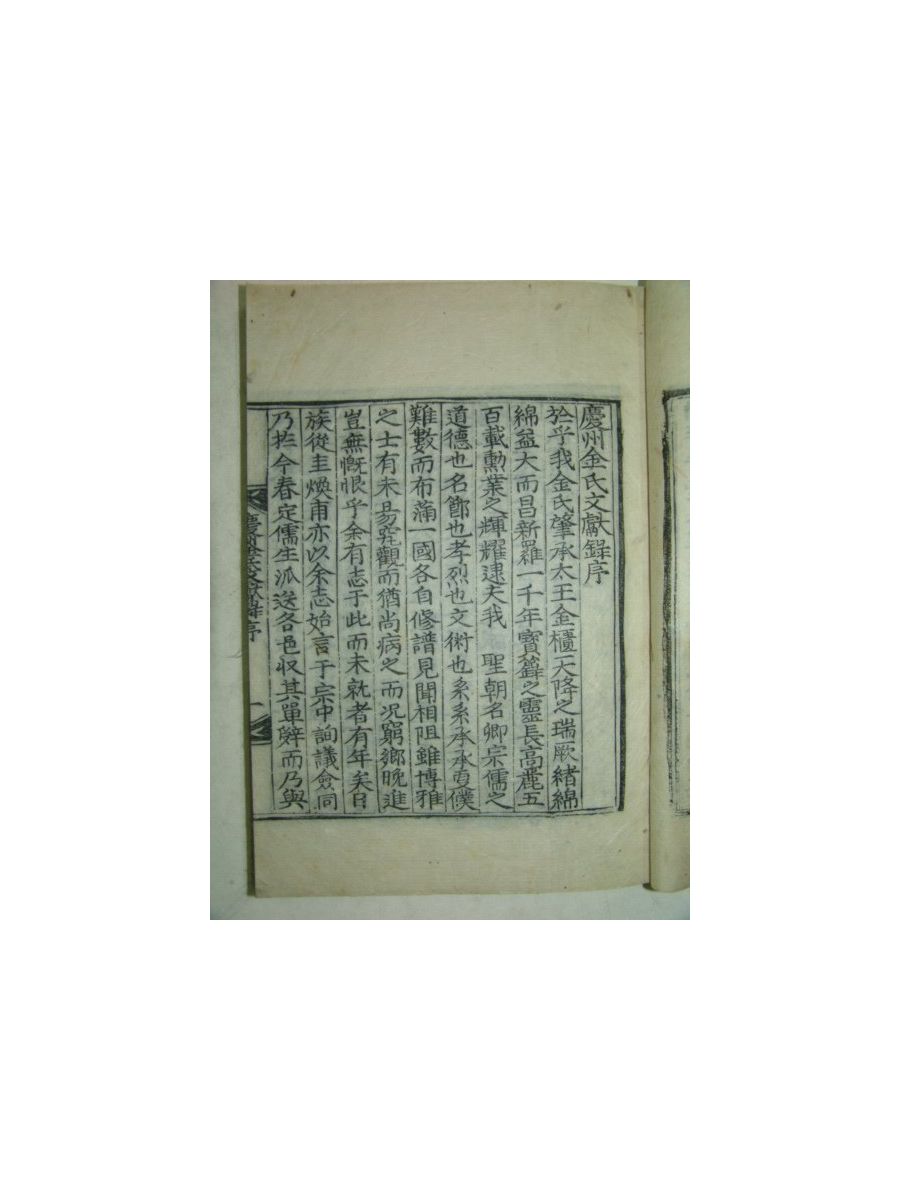 慶州金氏文獻錄序
於乎我金氏肇承太王金櫃天降之瑞厥緖綿
綿益大而昌新羅一千年寶籙之靈長高麗五
百載勳業之輝耀逮夫我 聖朝名卿宗儒之
道德也名節也孝烈也文術也系系承承更僕
難數而布蒲一國各自修譜見聞相阻雖博雅
之士有未易究觀而猶尚病之而况窮鄉晚進
豈無慨恨乎余有志于此而未就者有年矣日
族從圭煥甫亦以余志始言于宗中詢議僉同
乃於今春定儒生派送各邑収其單辭而乃與
慶州金氏文獻錄序
一